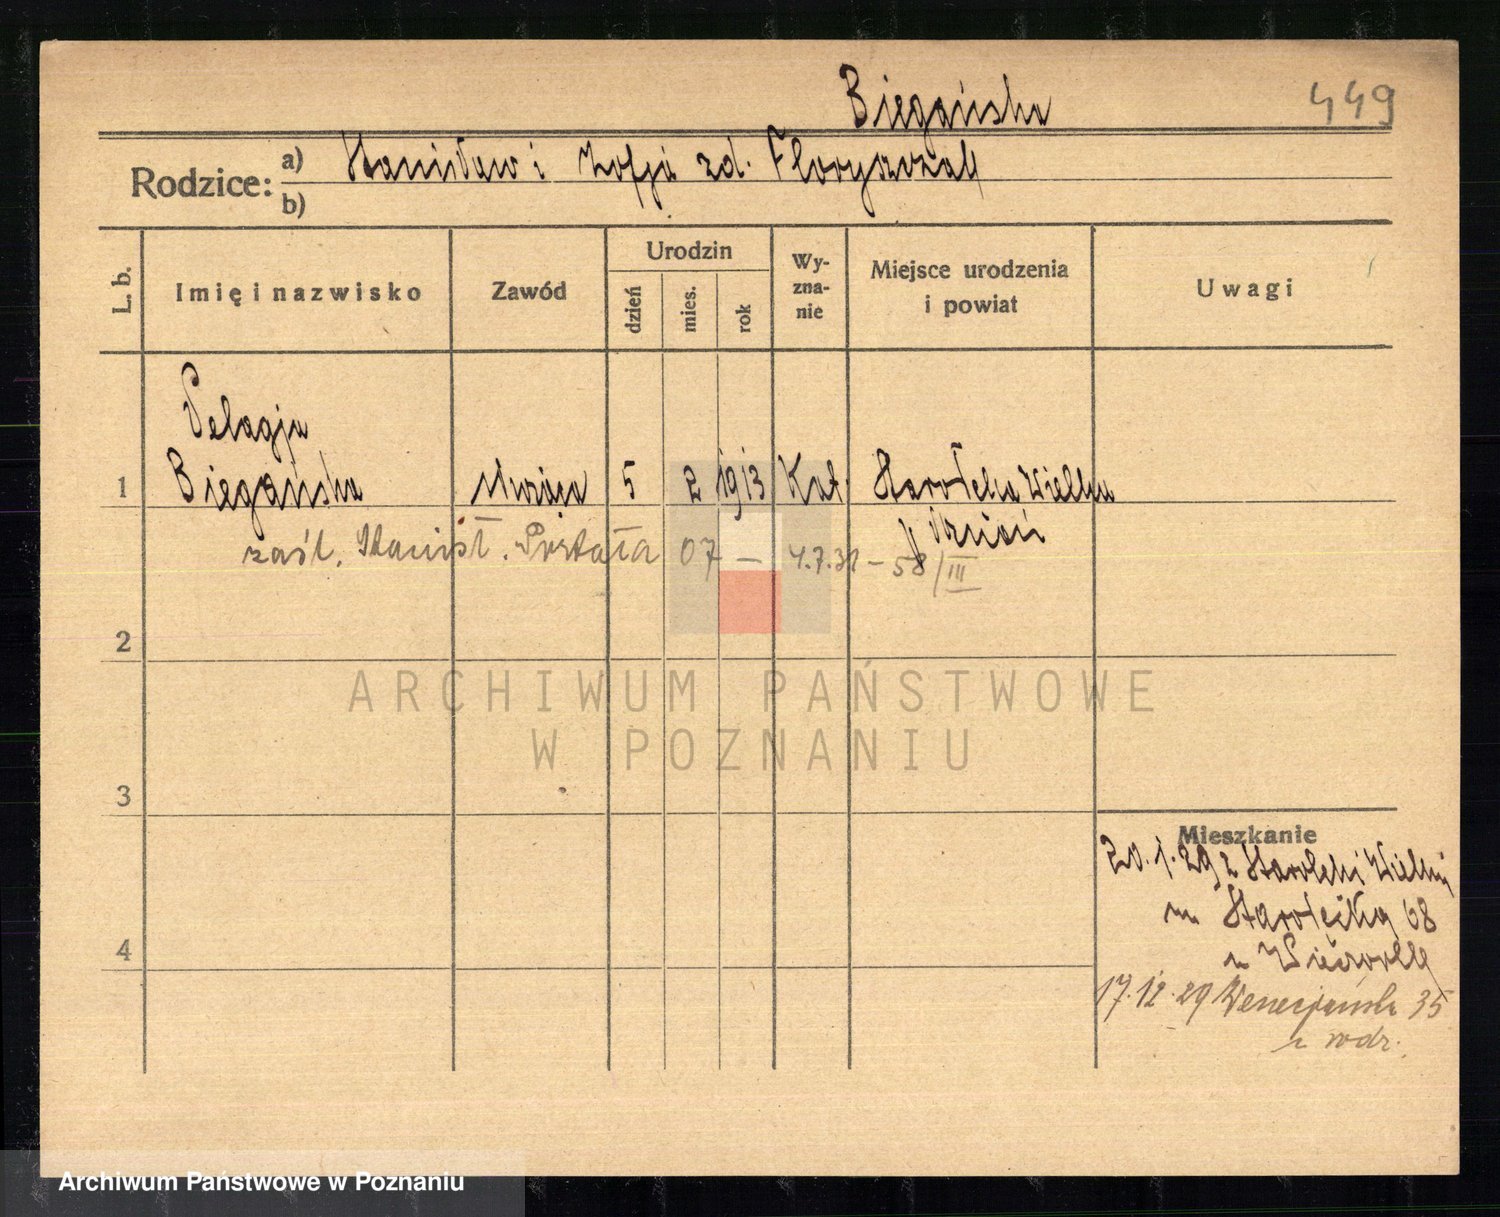 Biegańska 449
Rodzice: a) Stanisław i Zofja zd. Floryszczak
b)
L. b. Imię i nazwisko Zawód Urodzin dzień mies. rok Wyznanie Miejsce urodzenia i powiat Uwagi
Pelagja
1 Biegańska 5 2 1913 Kat. Starołęka Wielka
zaśl. Stanisł. 07 – 4.7.31 – 58/III
2
ARCHIWUM PAŃSTWOWE
W POZNANIU
3
Mieszkanie
20.1.29 z Starołęki Wielkiej
Starołęcka 68
4
17.12.29 Wenecjańska 35
rodz.
Archiwum Państwowe w Poznaniu